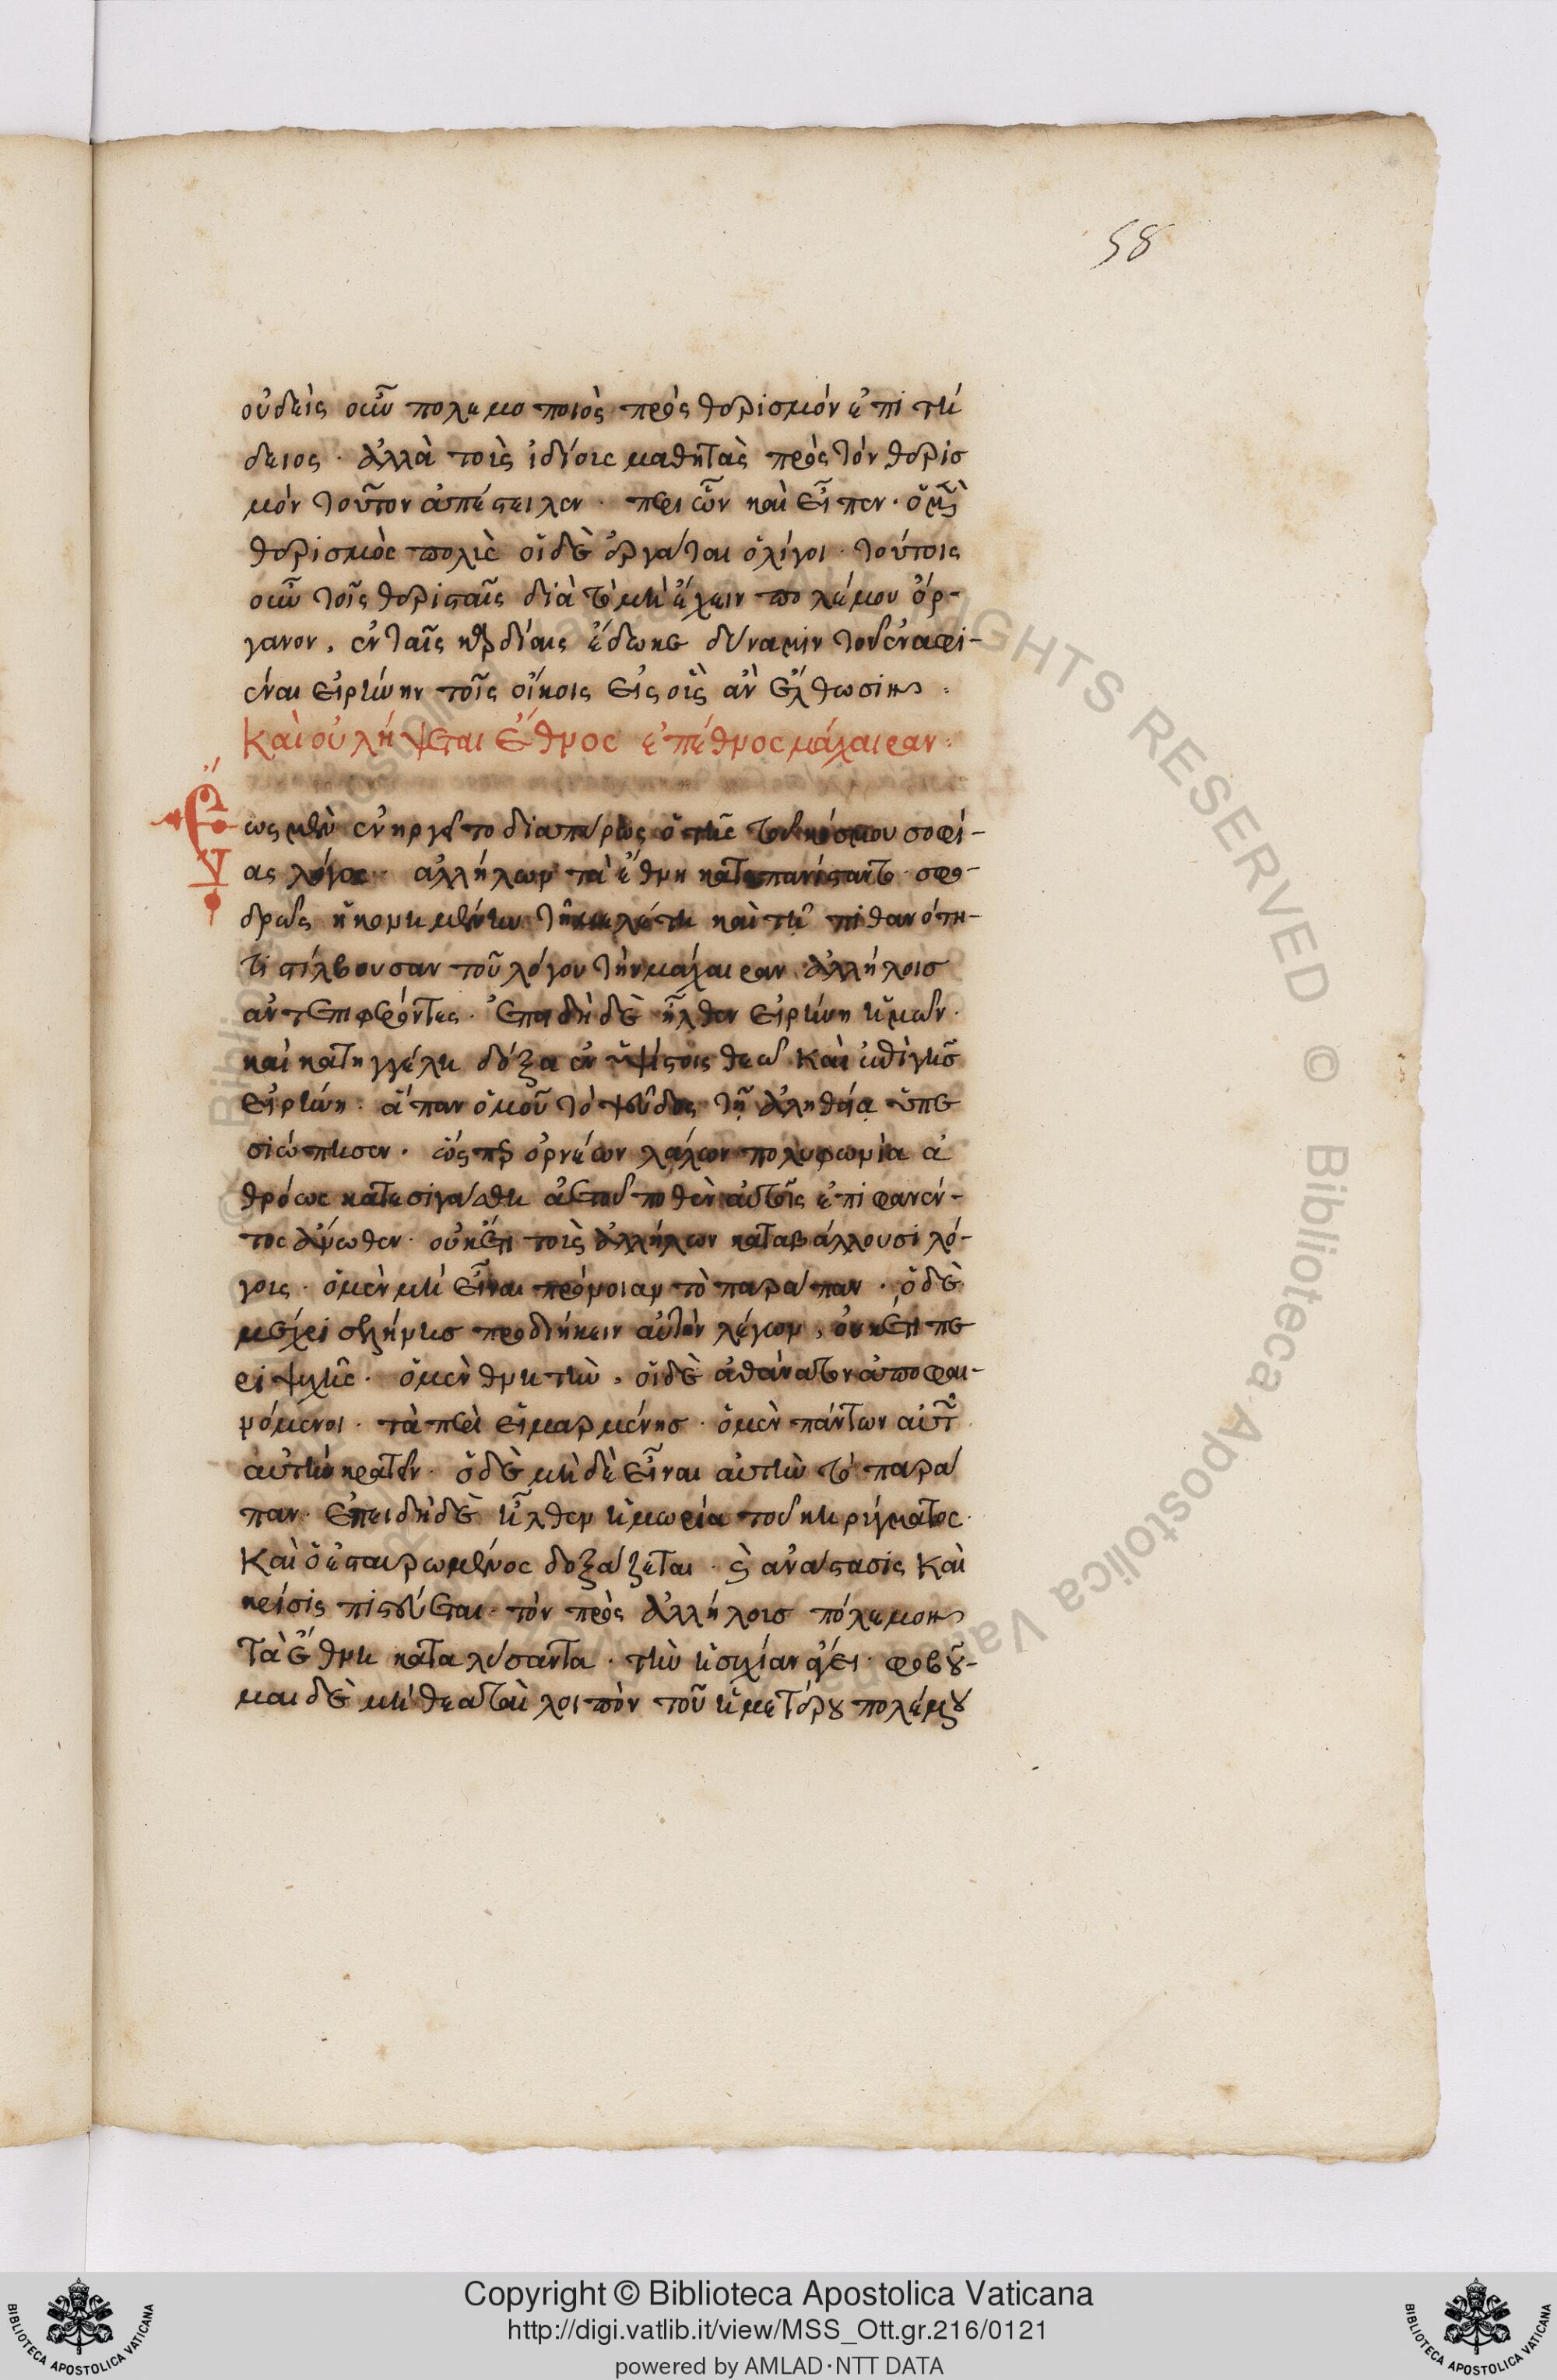 58
οὐδεὶς οὖν πολεμοποιὸς πρὸς θερισμὸν ἐπιτή
δειος · ἀλλὰ τοὺς ἰδίους μαθητὰς πρὸς τὸν θερισ
μὸν τοῦτον ἀπέστειλεν · περὶ ὧν καὶ εἶπεν · ὁ μὲν
θερισμὸς πολὺς οἱ δὲ ἐργάται ὀλίγοι · τούτοις
οὖν τοῖς θερισταῖς διὰ τὸ μὴ ἔχειν πολέμου ὄρ-
γανον, ἐν ταῖς καρδίαις ἔδωκε δύναμιν τοῦ ἐναφι-
έναι εἰρήνην τοῖς οἴκοις εἰς οὓς ἂν ἔλθωσιν :
Καὶ οὐ λήψεται ἔθνος ἐπ' ἔθνος μάχαιραν :
ἕως μὲν ἐνηργεῖτο διαπύρως ὁ τῆς τοῦ κόσμου σοφί-
ας λόγος · ἀλλήλων τὰ ἔθνη κατεπανίσταντο · σφο-
δρῶς ἠκονημένην τῇ μελέτῃ καὶ τῇ πιθανότη-
τι στίλβουσαν τοῦ λόγου τὴν μάχαιραν ἀλλήλοισ
ἀντεπιφέροντες · ἐπειδὴ δὲ ἦλθεν εἰρήνη ἡμῶν ·
καὶ κατηγγέλη δόξα ἐν ὑψίστοις θεῷ καὶ ἐπὶ γῆς
εἰρήνη · ἅπαν ὁμοῦ τὸ ψεῦδος τῇ ἀληθείᾳ ὑπε
σιώπησεν · ὥσπερ ὀρνέων λάλων πολυφωνία ἀ
θρόως κατεσιγάσθη ἀετοῦ ποθὲν αὐτοῖς ἐπιφανέν-
τος ἄνωθεν · οὐκέτι τοὺς ἀλλήλων καταβάλλουσι λό-
γους · ὁ μὲν μὴ εἶναι πρόνοιαν τὸ παράπαν · ὁ δὲ
μέχρι σελήνης προδιήκειν αὐτὴν λέγων, οὐκέτι πε
ρὶ ψυχῆς · ὁ μὲν θνητὴν, οἱ δὲ ἀθάνατον ἀποφαι-
νόμενοι · τὰ περὶ εἱμαρμένης · ὁ μὲν πάντων
αὐτὴν κρατεῖν · ὁ δὲ μὴ δὲ εἶναι αὐτὴν τὸ παρά
παν · ἐπειδὴ δὲ ἦλθεν ἡ μωρία τοῦ κηρύγματος ·
καὶ ὁ ἐσταυρωμένος δοξάζεται · καὶ ἀνάστασις καὶ
κρίσις πιστεύεται · τὸν πρὸς ἀλλήλους πόλεμον
τὰ ἔθνη καταλύσαντα · τὴν ἡσυχίαν ἄγει · φοβοῦ-
μαι δὲ μὴ θεαταὶ λοιπὸν τοῦ ἡμετέρου πολέμου
Copyright © Biblioteca Apostolica Vaticana
http://digi.vatlib.it/view/MSS_Ott.gr.216/0121
powered by AMLAD·NTT DATA